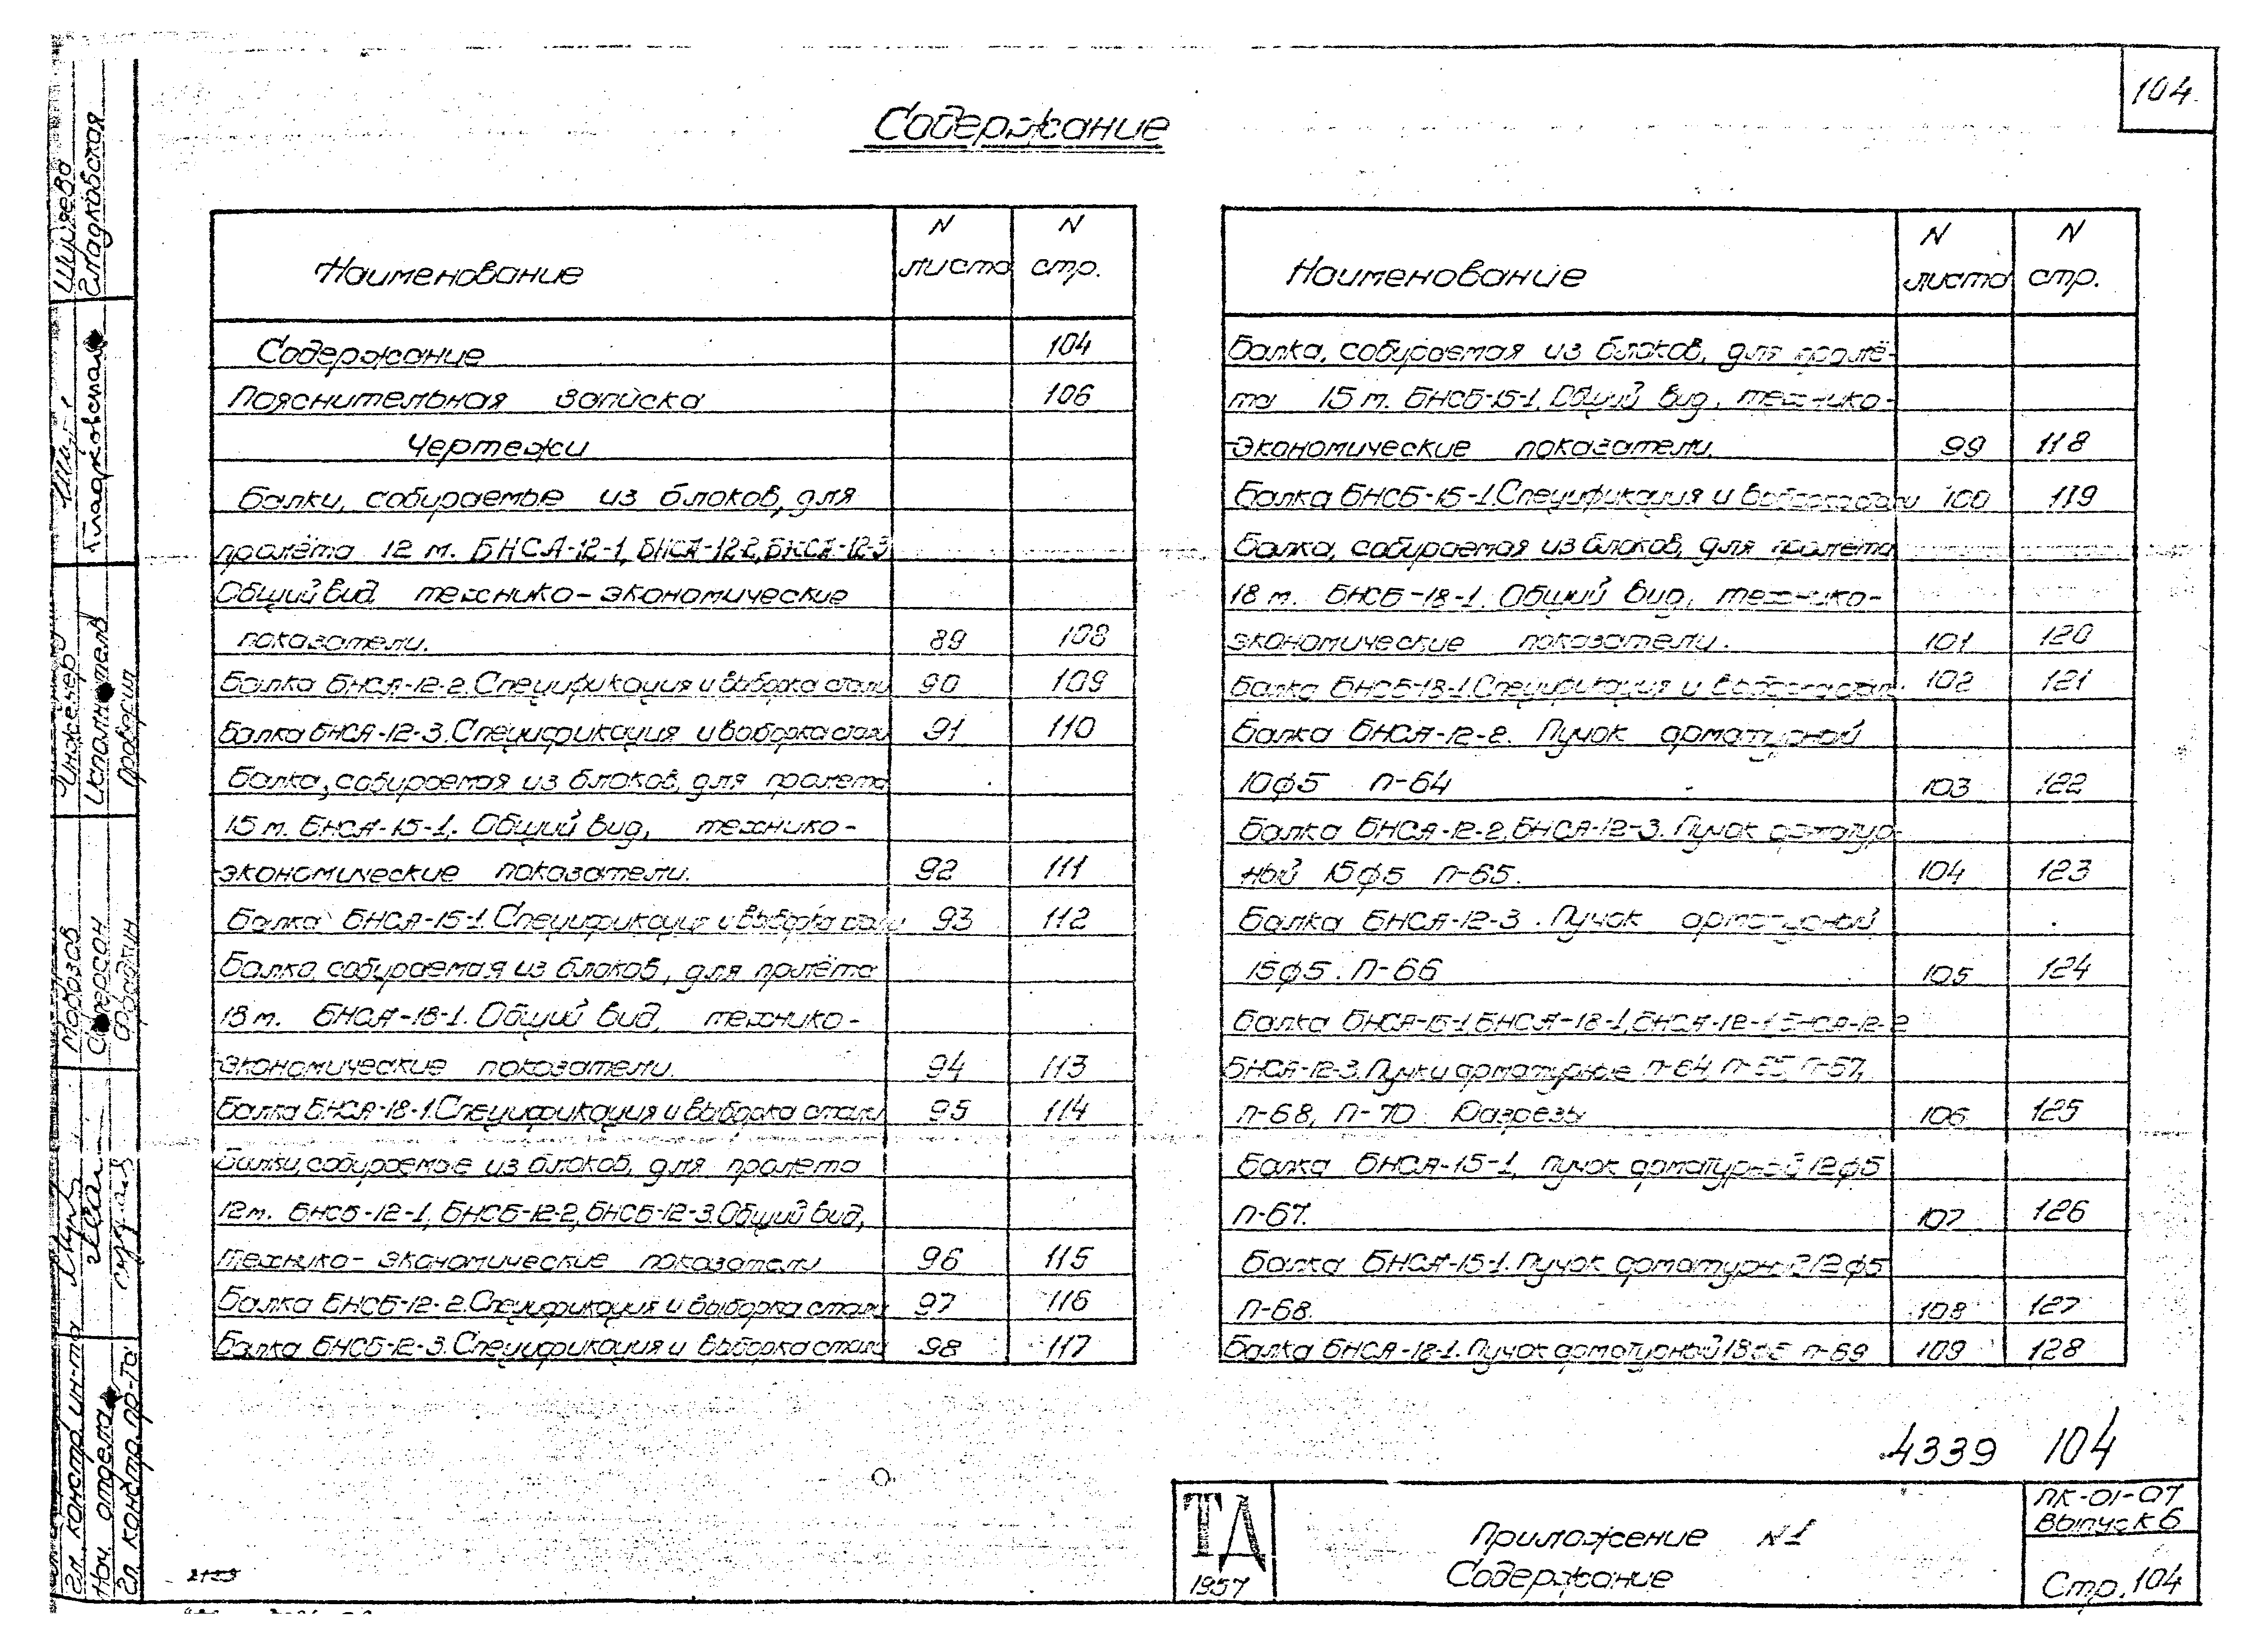 104
Содержание
Наименование N листа N стр.
Содержание 104
Пояснительная записка 106
Чертежи
Балки, собираемые из блоков, для
пролёта 12 м. БНСА-12-1, БНСА-12-2, БНСА-12-3
Общий вид технико-экономические
показатели. 89 108
Балка БНСА-12-2. Спецификация и выборка стали 90 109
Балка БНСА-12-3. Спецификация и выборка стали 91 110
Балка, собираемая из блоков, для пролета
15 м. БНСА-15-1. Общий вид, технико-
экономические показатели. 92 111
Балка БНСА-15-1. Спецификация и выборка стали 93 112
Балка, собираемая из блоков, для пролёта
18 м. БНСА-18-1. Общий вид, технико-
экономические показатели. 94 113
Балка БНСА-18-1. Спецификация и выборка стали 95 114
Балки, собираемые из блоков, для пролета
12 м. БНСБ-12-1, БНСБ-12-2, БНСБ-12-3. Общий вид,
технико-экономические показатели 96 115
Балка БНСБ-12-2. Спецификация и выборка стали 97 116
Балка БНСБ-12-3. Спецификация и выборка стали 98 117
Наименование N листа N стр.
Балка, собираемая из блоков, для пролё-
та 15 м. БНСБ-15-1. Общий вид, технико-
экономические показатели. 99 118
Балка БНСБ-15-1. Спецификация и выборка стали 100 119
Балка, собираемая из блоков, для пролета
18 м. БНСБ-18-1. Общий вид, технико-
экономические показатели. 101 120
Балка БНСБ-18-1. Спецификация и выборка стали 102 121
Балка БНСА-12-2. Пучок арматурный
10ф5 П-64 103 122
Балка БНСА-12-2, БНСА-12-3. Пучок арматур-
ный 15ф5 П-65. 104 123
Балка БНСА-12-3. Пучок арматурный
15ф5. П-66 105 124
Балка БНСА-15-1, БНСА-18-1, БНСА-12-1 БНСА-12-2
БНСА-12-3. Пучки арматурные П-64, П-65, П-67,
П-68, П-70. Разрезы 106 125
Балка БНСА-15-1, пучок арматурный 12ф5
П-67. 107 126
Балка БНСА-15-1. Пучок арматурный 12ф5
П-68. 108 127
Балка БНСА-18-1. Пучок арматурный 18ф5 П-69 109 128
4339 104
ТД
1957
Приложение N1
Содержание
ПК-01-07
Выпуск 6
Стр. 104
Гл. констр. ин-та Морозов Инженер Ширяева
Нач. отдела Исполнитель Гладковская
Гл. констр. пр-та Проверил